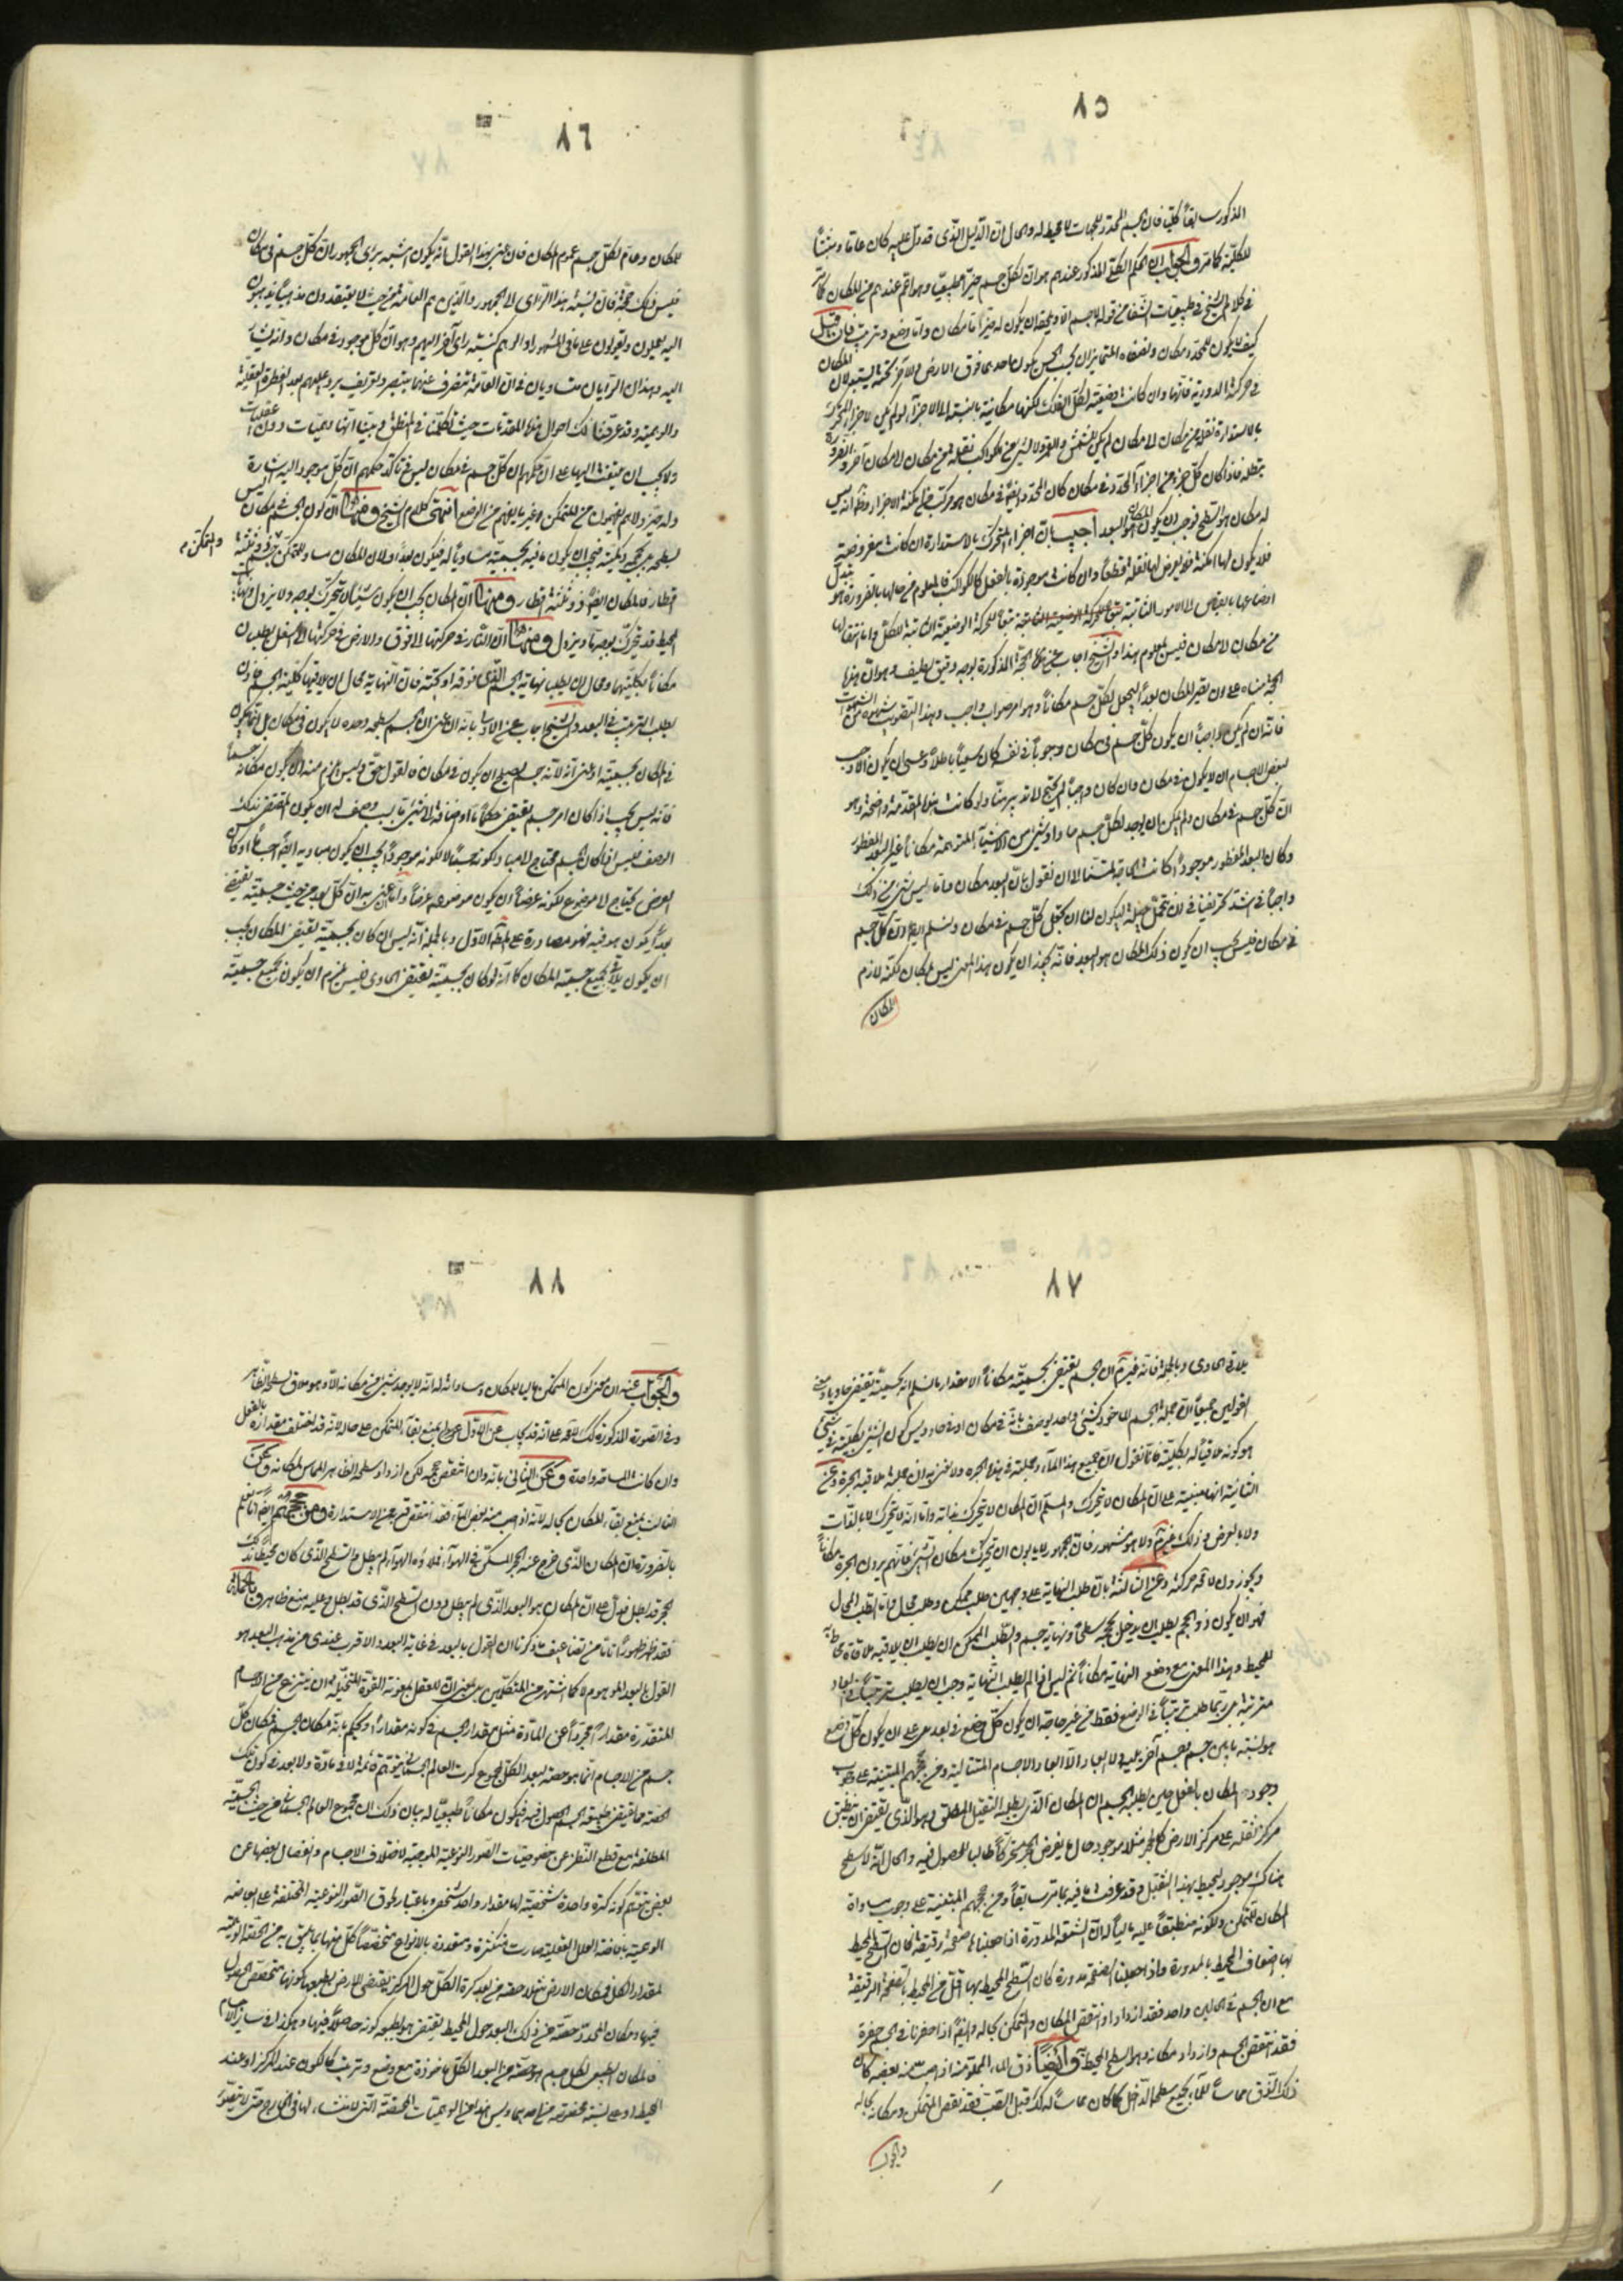 ٨٥
المذكور سابقاً كلية فان الجسم المحدد للجهات لا محيط له والحال ان الدليل الذى قد دل عليه كان عاماً ومثبتاً
للكلية كما مر والجواب ان الحكم الكلى المذكور عندهم هو ان لكل جسم حيزاً طبيعياً وهو اعم عندهم من المكان كما مر
فى كلام الشيخ فى طبيعيات الشفا من قوله لا جسم الا ويلحقه ان يكون له حيز اما مكان واما وضع وترتيب فان قيل
كيف لا يكون للمحدد مكان ونصفاه المتمايزان بحسب الحس يكون احدهما فوق الارض والآخر تحته يستبدلان المكان
فى حركته الدورية فانها وان كانت وضعية لكل الفلك لكنها مكانية بالنسبة الى الاجزاء ولو لم يكن لاجزاء المتحرك
بالاستدارة نقلة من مكان الى مكان لم يكن للشمس والقمر ولا لشئ من الكواكب نقلة من مكان الى مكان آخر والضرورة
تبطله فاذا كان كل جزء من اجزاء المحدد فى مكان كان المحدد ايضاً فى مكان هو مركب من امكنة الاجزاء وظ انه ليس
له مكان هو السطح فوجب ان يكون المكان هو البعد اجيب بان اجزاء المتحرك بالاستدارة ان كانت مفروضة
فلا يكون لها امكنة فلا يعرض لها نقلة قطعاً وان كانت موجودة بالفعل كالكواكب فالمعلوم من حالها بالضرورة هو تبدل
اوضاعها بالقياس الى الامور الثابتة تبعاً للحركة الوضعية الثابتة للكل واما انتقالها
من مكان الى مكان فليس بمعلوم هذا والشيخ اجاب عن هذه الحجة المذكورة بوجه دقيق لطيف وهو ان هذه
الحجة مبناه على ان تصير المكان بعداً ليجعل لكل جسم مكاناً وهو امر صواب واجب وهذا التصويب
فانه ان لم يكن واجباً ان يكون كل جسم فى مكان وجوباً فى نفسه كان سعينا باطلاً وعسى ان يكون الاوجب
لبعض الاجسام ان لا يكون فى مكان وان كان واجباً لم يحتج الى تدبيرنا ولو كانت هذه المقدمة واضحة وهو
ان كل جسم فى مكان ولم يمكن ان يوجد لكل جسم حاو او شئ من الاشياء المتوهمة مكاناً غير البعد المفطور
وكان البعد المفطور موجوداً كانت الحاجة تمسنا الى ان نقول بان البعد مكان فاما وليس شئ من ذلك
واجباً فما اشد تحريفنا فى ان نتمحل حيلة ليكون لنا ان نجعل كل جسم فى مكان ونسلم ايضاً ان كل جسم
فى مكان فليس يجب ان يكون ذلك المكان هو البعد فانه يجوز ان يكون هذا المعنى ليس بمكان لكنه لازم
المكان
٨٦
للمكان وعام لكل جسم عموم المكان فان عنى بهذا القول انه يكون اشبه برأى الجمهور ان كل جسم فى مكان
فليس ذلك حجة فان نسبة هذا الرأى الى الجمهور والذين هم العامة من حيث لا يعتقدون مذهباً يذهبون
اليه يعملون ويقولون على ما فى المشهور او الوهم كنسبة رأى آخر اليهم وهو ان كل موجود فى مكان وانه يشار
اليه وهذان الرأيان متساويان فى ان العامة تنصرف عنهما بتبصير وتعريف يرد عليهم بعد الفطرة العقلية
والوهمية وقد عرفنا لك احوال هذه المقدمات حيث تكلمنا فى المنطق وبينا انها وهميات دون عقليات
ولا يجب ان يلتفت اليها على ان حكمهم ان كل جسم فى مكان ليس فى تأكد حكمهم ان كل موجود اليه اشارة
وله حيز ولاهم يفهمون من المتمكن غير ما يفهم من الوضع انتهى كلام الشيخ ومنها ان كون الجسم فى مكان ليس
بسطحه بل بحجمه وكميته فيجب ان يكون ما فيه بجسميته مساوياً له فيكون بعداً ولان المكان مساو للمتمكن والمتمكن جسم ذو ثلثة
اقطار فالمكان ايضاً ذو ثلثة اقطار ومنها ان المكان يجب ان يكون شيئاً لا يتحرك بوجه ولا يزول ونهاية
المحيط قد يتحرك بوجه ما ويزول ومنها ان النار فى حركتها الى فوق والارض فى حركتها الى اسفل يطلبان
مكاناً بكليتهما ومحال ان يطلب نهاية الجسم الذى فوقه او تحته فان النهاية محال ان يلاقيها كلية الجسم فاذن
يطلب الترتيب فى البعد والشيخ اجاب عن الاولى بانه ان عنى ان الجسم بسطحه وحده لا يكون فى مكان بل انما يكون
فى المكان بجسميته او عنى انه لانه جسم يصلح ان يكون فى مكان فالقول حق وليس يلزم منه ان يكون مكانه جسماً
فانه ليس يجب اذا كان امر جسم يقتضى حكماً ما او اضافة الى شئ بسبب وصف له ان يكون المقتضى بذلك
الوصف فليس اذا كان الجسم يحتاج الى مباد لكونه جسماً لا لكونه موجوداً يجب ان يكون مباديه ايضاً اجساماً او كان
العرض يحتاج الى موضوع لكونه عرضاً ان يكون موضوعه عرضاً وان عنى به ان كل بعد من حيث جسميته تقتضى
بعداً يكون هو فيه فهو مصادرة على المطلوب الاول وبالجملة انه ليس ان كان بجسميته تقتضى المكان يجب
ان يكون يلاقى بجميع جسمية المكان كما انه لو كان بجسميته تقتضى الحاوى فليس يلزم ان يكون بجميع جسميته
٨٧
يلاقى الحاوى وبالجملة فانه غير مسلم ان الجسم يقتضى بجسميته مكاناً الا مقدار ما نسلم انه بجسميته تقتضى حاوياً ومعنى
القولين جميعاً ان جملة الجسم المأخوذ كشئ واحد يوصف بانه فى مكان او فى حاو وليس كون الشئ بكليته فى شئ
هو كونه ملاقياً له بكليته فانا نقول ان جميع هذا الماء وجملته فى هذه الجرة ولا نعنى به ان جملته ملاقية الجرة وعن
الثانية انها مبنية على ان المكان لا يتحرك والمسلم ان المكان لا يتحرك بذاته واما انه لا يتحرك لا بالذات
ولا بالعرض فذلك غير مسلم ولا هو مشهور فان الجمهور لا يأبون ان يتحرك مكان الشئ فانهم يرون ان الجرة مكاناً
ويجوزون لا محة حركته وعن الثالثة بان طلب النهاية على وجهين طلب ممكن وطلب محال فاما الطلب المحال
فهو ان يكون ذو الحجم يطلب ان يدخل بحجمه سطحاً ونهاية جسم والطلب الممكن ان يطلب ان يلاقيه ملاقاة محاطية
للمحيط وهذا المعنى مع وضع النهاية مكاناً ثم ليس اذا لم يطلب النهاية وجب ان يطلب ترتيباً فى ابعاد
مترتبة بل ربما طلب ترتيباً فى الوضع فقط من غير حاجة ان يكون كل وضع فى بعد بل على ان يكون كل وضع
هو نسبة ما بين جسم وجسم آخر يليه ولا ابعاد الا ابعاد الاجسام المتتالية ومن حججهم المبتنية على وجوب
وجود المكان بالفعل حين يطلبه الجسم ان المكان الذى يطلبه الثقيل المطلق وهو الذى يقتضى ان ينطبق
مركز ثقله على مركز الارض كالحجر مثلاً موجود حال ما يفرض الحجر متحركاً طالباً للحصول فيه والحال انه لا سطح
هناك موجود يحيط بهذا الثقيل وقد عرفت ما فيه بما مر سابقاً ومن حججهم المبتنية على وجوب مساواة
المكان للمتمكن ولكونه منطبقاً عليه مالياً له ان الشمعة المدورة اذا جعلناها صفحة رقيقة كان السطح المحيط
بها اضعاف المحيط بالمدورة واذا جعلنا الصفحة مدورة كان السطح المحيط بها اقل من المحيط بالصفحة الرقيقة
مع ان الجسم فى الحالين واحد فقد ازداد او انتقص المكان والمتمكن بحاله وايضاً اذا حفرنا فى الجسم حفرة
فقد انتقص الجسم وازداد مكانه وهو السطح المحيط وايضاً زق الماء المملو منه اذا صب منه بعضه كان
ذلك الزق مماساً للماء بجميع سطحه الداخل كما كان مماساً له كذلك قبل الصب فقد نقص المتمكن ومكانه بحاله
والجواب
٨٨
والجواب عنه ان معنى كون المتمكن مالياً للمكان ومساواته له انه لا يوجد شئ من مكانه الا وهو ملاق لسطح الظاهر
وفى الصورة المذكورة كذلك لا محة على انه قد يجاب عن الاول بمنع بقاء المتمكن على حاله لانه قد اختلف مقداره بالفعل
وان كانت المساحة واحدة وعن الثانى بانه وان انتقص حجمه لكن ازداد سطحه الظاهر المماس لمكانه وعن
الثالث بمنع بقاء المكان بحاله لانه اذا صب منه بعض الماء فقد انتقص قربه من الاستدارة ومن حججهم ايضاً انا نعلم
بالضرورة ان المكان الذى خرج عنه الحجر المسكن فى الهواء فملأه الهواء لم يبطل والسطح الذى كان محيطاً بذلك
الحجر قد بطل فدل على ان المكان هو البعد الذى لم يبطل دون السطح الذى قد بطل وعليه منع ظاهر وبالجملة
فقد ظهر ظهوراً تاماً من تضاعيف ما ذكرنا ان القول بالبعد فى غاية البعد والاقرب عندى من مذهب البعد هو
القول بالبعد الموهوم لا كما اشتهر من المتكلمين بل بمعنى ان للعقل بمعونة القوة المتخيلة ان ينتزع من الاجسام
المتقدرة مقداراً مجرداً عن المادة مثل مقدار الجسم فى كونه مقداراً ويحكم بانه مكان الجسم فمكان كل
جسم من الاجسام انما هو حصة لبعد الكل مجموع كرات العالم الجسمانى متوهمة قائمة لا فى مادة ولا بعد فى كون تلك
الحصة مما يقتضى طبيعة الجسم الحصول فيه فيكون مكاناً طبيعياً له بيان ذلك ان مجموع العالم الجسمانى من حيث الجسمية
المطلقة مع قطع النظر عن خصوصيات الصور النوعية الموجبة لاختلاف الاجسام وانفصال بعضها عن
بعض يتوهم كونه كرة واحدة شخصية لها مقدار واحد شخصى وباعتبار لحوق الصور النوعية المختلفة على ابعاضه
الوهمية بافاضة العلل الفعلية صارت متكثرة ومتعددة بالانواع متخصصاً كل منها بما يليق به من الحصة الوهمية
لمقدار الكل فمكان الارض مثلاً حصة من بعد كرة الكل حول المركز يقتضى الارض بطبعها كونها متخصص الحصول
فيها ومكان المحدد حصة من ذلك البعد حول المحيط يقتضى هو بطبعه كونه حاصلاً فيها وهكذا فى سائر الاجسام
فالمكان الطبيعى لكل جسم هو حصة من البعد الكل مأخوذة مع وضع وترتيب ما ككون عند المركز او عند
المحيط او على نسبة مخصوصة منهما وليس هذا من الوهميات المحضة التى لا منشاء لها فى الخارج حتى لا يتصور